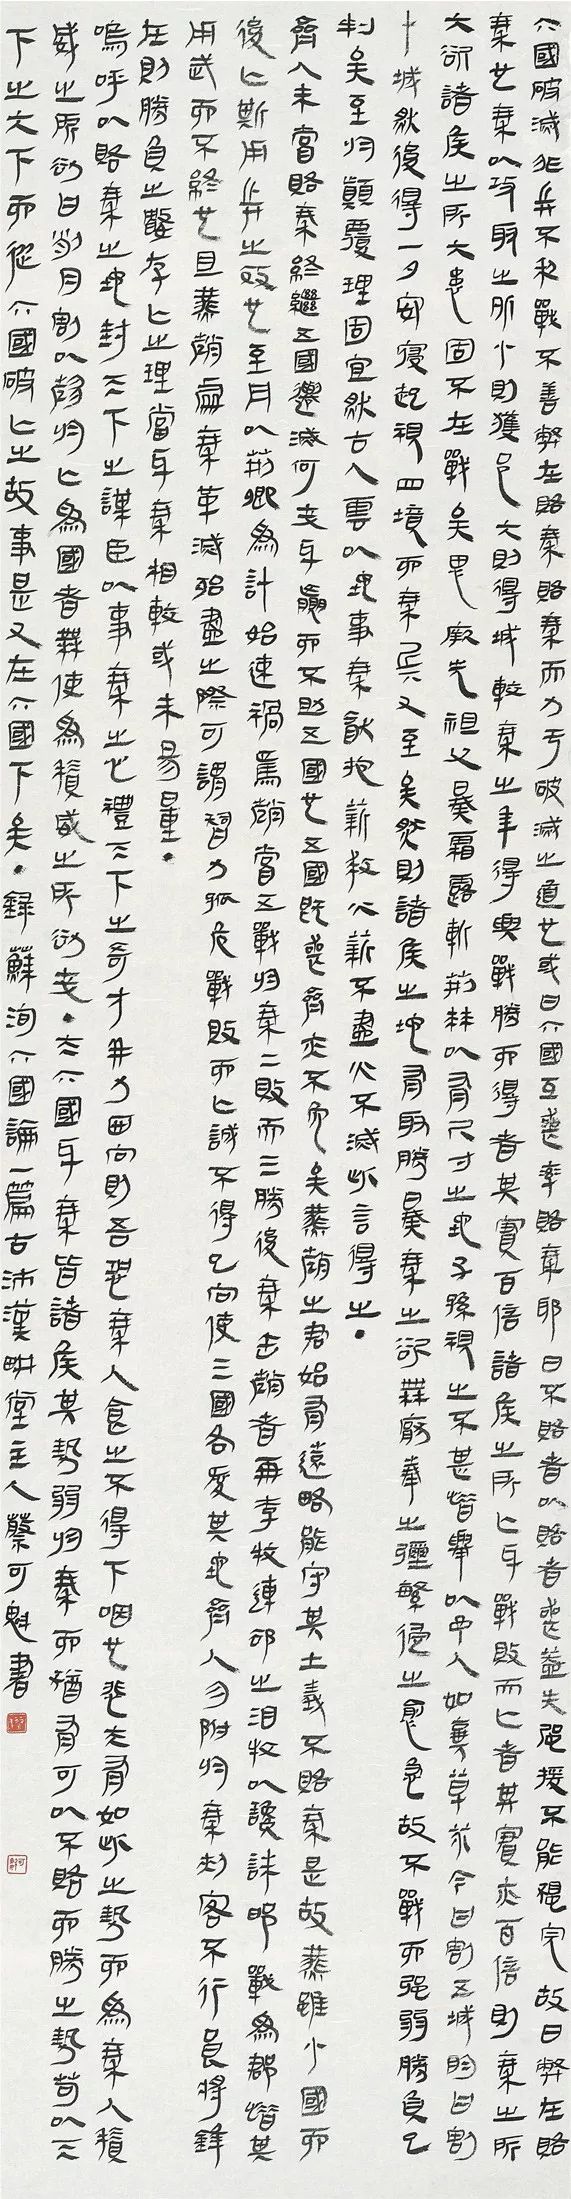 六國破滅非兵不利戰不善弊在賂秦賂秦而力虧破滅之道也或曰六國互喪率賂秦耶曰不賂者以賂者喪蓋失強援不能獨完故曰弊在賂
秦也秦以攻取之所小則獲邑大則得城較秦之所得與戰勝而得者其實百倍諸侯之所亡与戰敗而亡者其實亦百倍則秦之所
大欲諸侯之所大患固不在戰矣思厥先祖父暴霜露斬荊棘以有尺寸之地子孫視之不甚惜舉以予人如棄草芥今日割五城明日割
十城然後得一夕安寢起視四境而秦兵又至矣然則諸侯之地有限暴秦之欲無厭奉之彌繁侵之愈急故不戰而強弱勝負已
判矣至於顛覆理固宜然古人雲以地事秦猶抱薪救火薪不盡火不滅此言得之。
齊人未嘗賂秦終繼五國遷滅何哉与嬴而不助五國也五國既喪齊亦不免矣燕趙之君始有遠略能守其土義不賂秦是故燕雖小國而
後亡斯用兵之效也至丹以荊卿為計始速禍焉趙嘗五戰於秦二敗而三勝後秦擊趙者再李牧連卻之洎牧以讒誅邯鄲為郡惜其
用武而不終也且燕趙處秦革滅殆盡之際可謂智力孤危戰敗而亡誠不得已向使三國各愛其地齊人勿附於秦刺客不行良將猶
在則勝負之數存亡之理當与秦相較或未易量。
嗚呼以賂秦之地封天下之謀臣以事秦之心禮天下之奇才并力西向則吾恐秦人食之不得下咽也悲夫有如此之勢而為秦人積
威之所劫日削月割以趨於亡為國者無使為積威之所劫哉。夫六國与秦皆諸侯其勢弱於秦而猶有可以不賂而勝之勢苟以天
下之大下而從六國破亡之故事是又在六國下矣。錄蘇洵六國論一篇古沛漢畊堂主人蔡可魁書